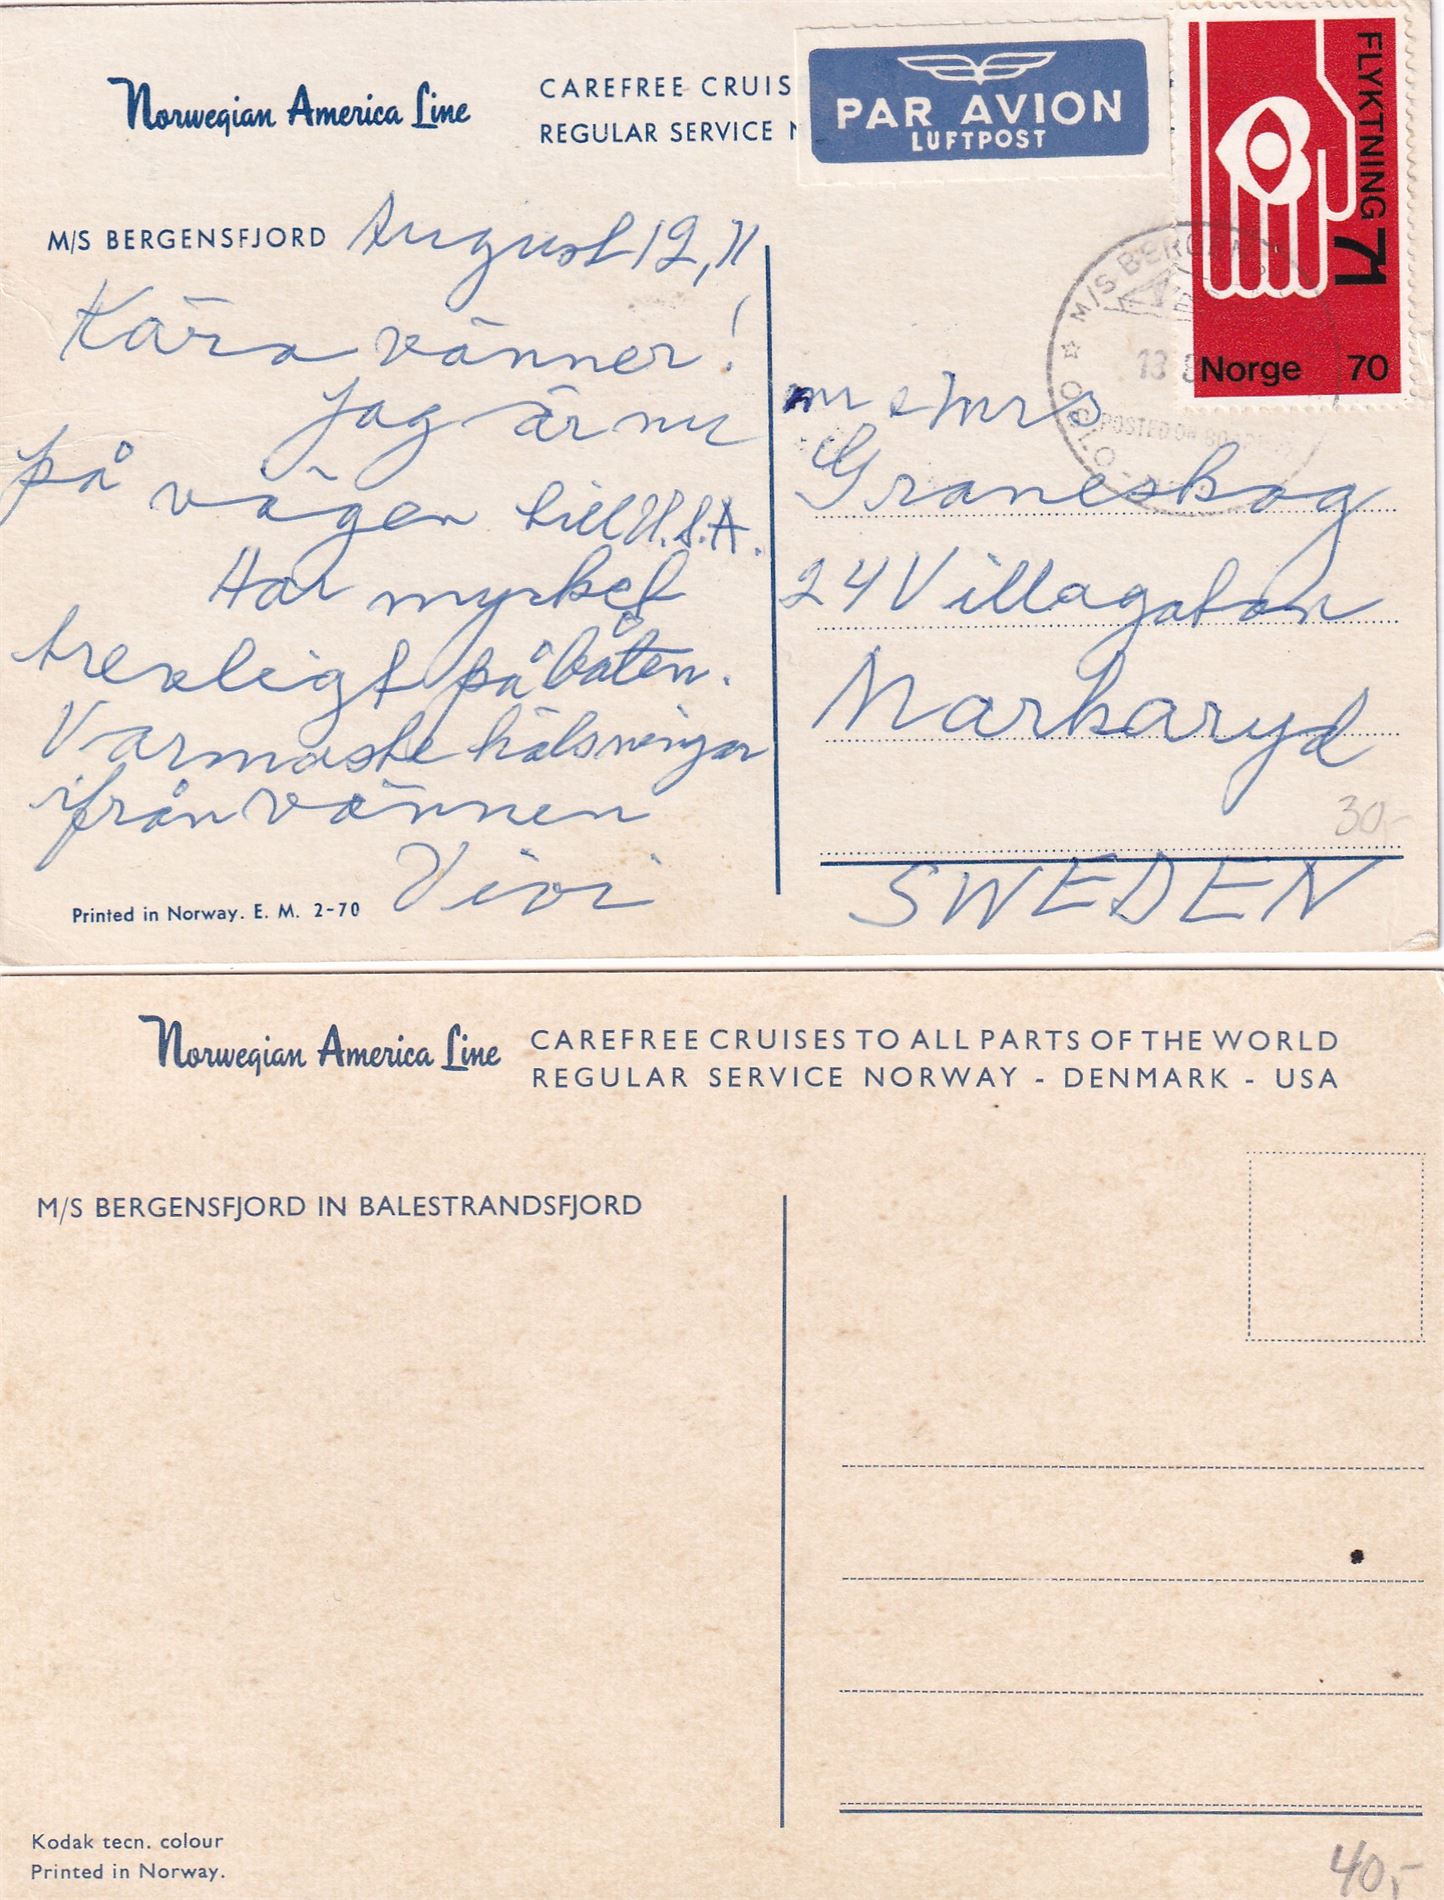 Norwegian America Line
CAREFREE CRUIS
REGULAR SERVICE N
PAR AVION
LUFTPOST
FLYKTNING 71
Norge 70
M/S BERGENSFJORD August 12, 71
Kära vänner!
Jag är nu
på vägen till U.S.A.
Har mycket
trevligt på båten.
Varmaste hälsningar
ifrån vännen
Vivi
Printed in Norway. E. M. 2-70
M/S BERGEN
13 8
POSTED ON BOARD
OSLO
mr & mrs
Graneskog
24 Villagatan
Markaryd
30,-
SWEDEN
Norwegian America Line
CAREFREE CRUISES TO ALL PARTS OF THE WORLD
REGULAR SERVICE NORWAY - DENMARK - USA
M/S BERGENSFJORD IN BALESTRANDSFJORD
Kodak tecn. colour
Printed in Norway.
40,-